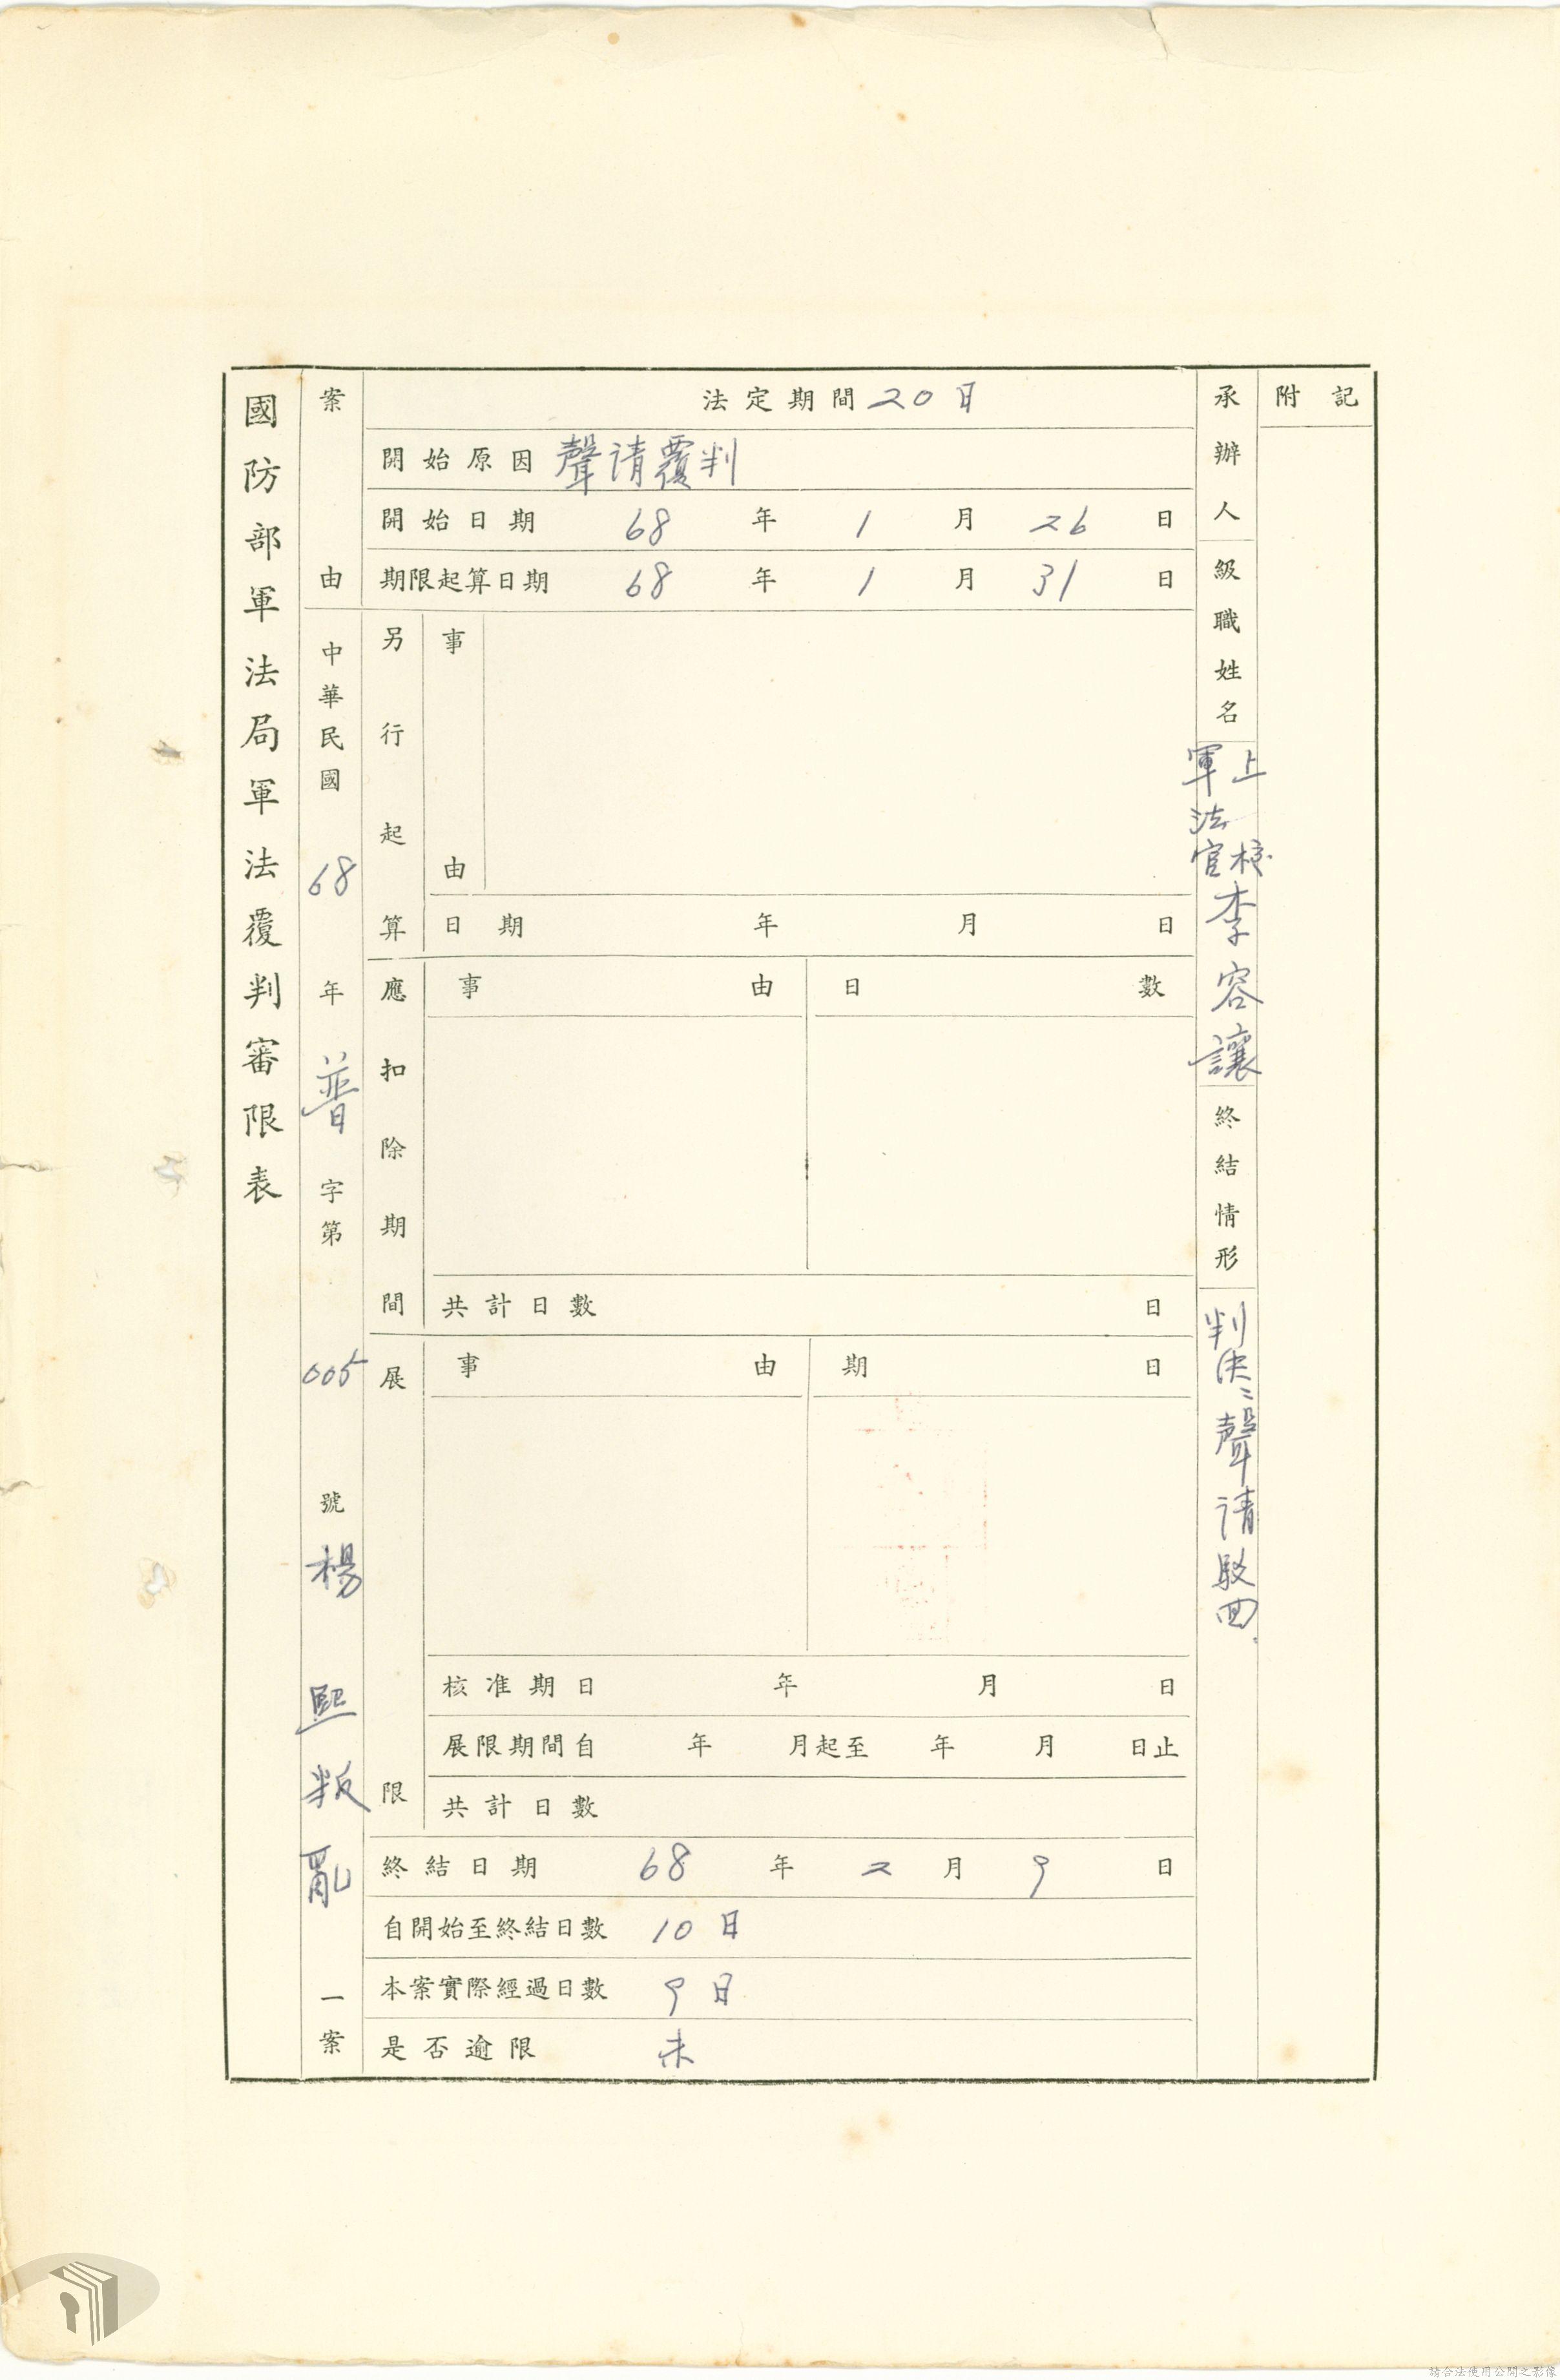 國防部軍法局軍法覆判審限表
案由
中華民國68年普字第005號楊熙叛亂一案
法定期間20日
開始原因 聲請覆判
開始日期 68年1月26日
期限起算日期 68年1月31日
另行起算
事由
日期 年 月 日
應扣除期間
事由 日數
共計日數 日
展限
事由 期日
核准期日 年 月 日
展限期間自 年 月起至 年 月 日止
共計日數
終結日期 68年2月9日
自開始至終結日數 10日
本案實際經過日數 9日
是否逾限 未
承辦人級職姓名
上校
軍法官
李容讓
終結情形
判決:聲請駁回.
附記
請合法使用公開之影像